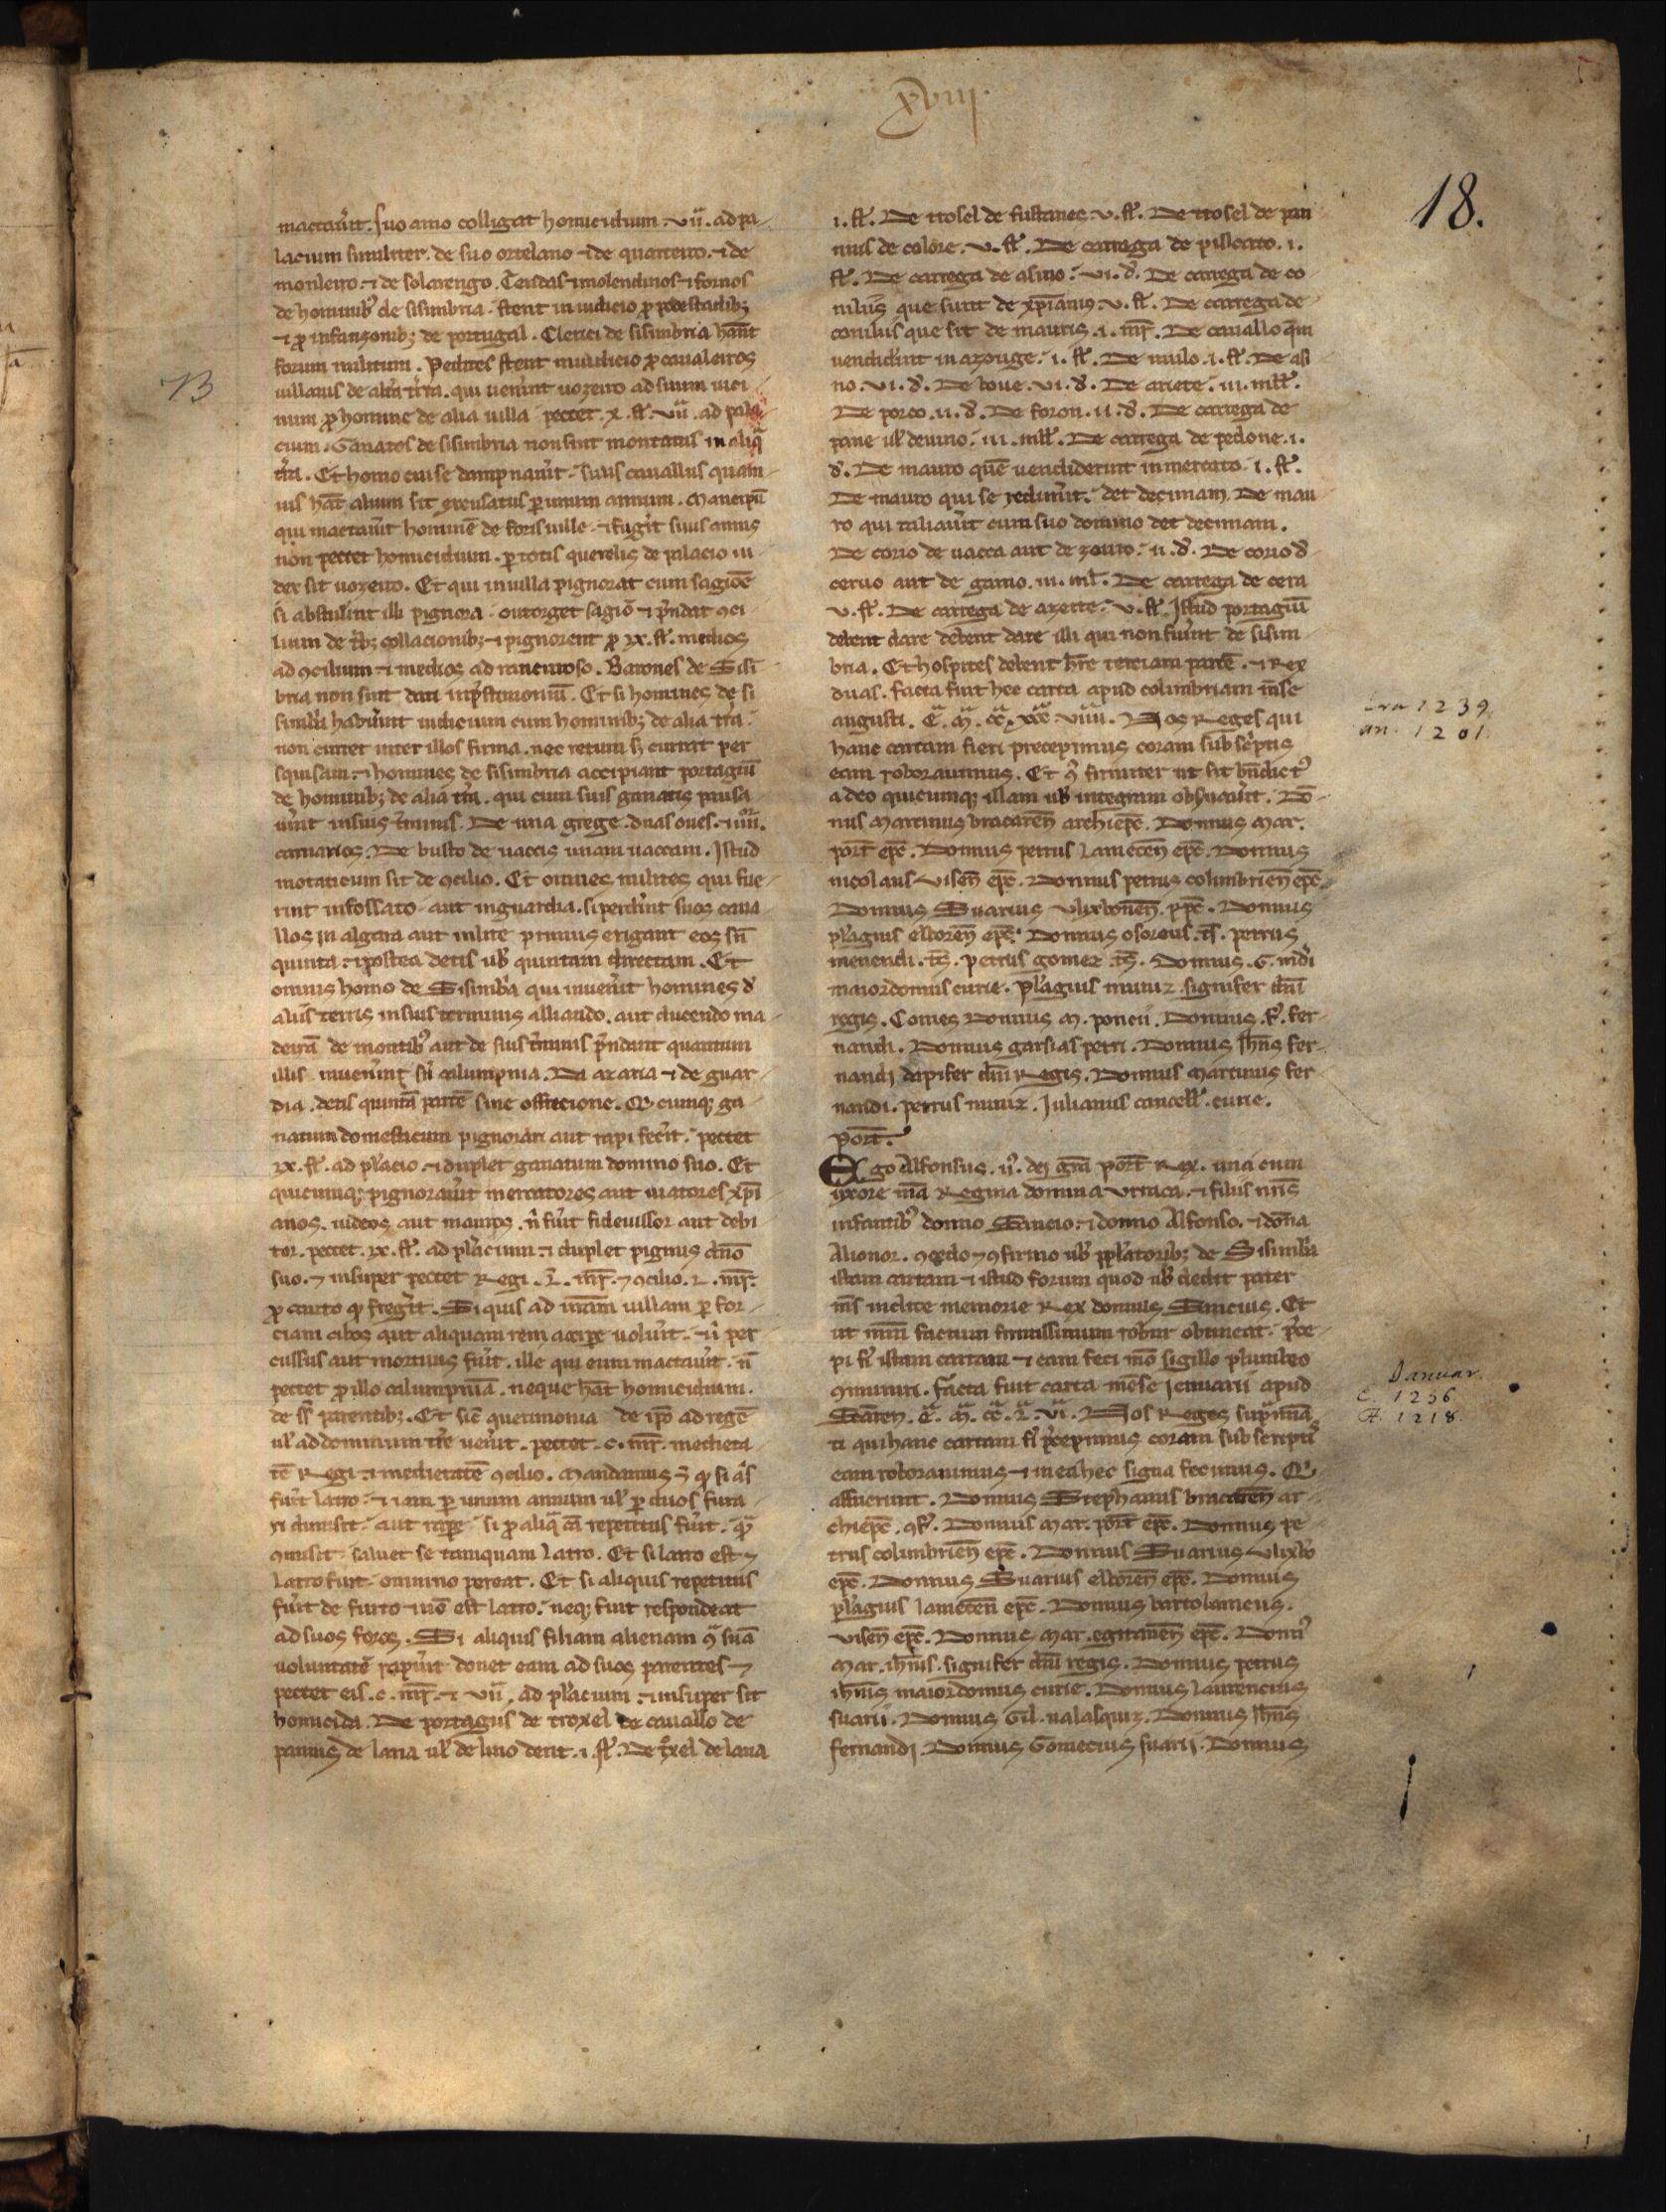 xviii
18.
mactau̾it. suo amo colligat homicidium. vıı̃. ad pa
lacium similiter. de suo ortelano ⁊ de quarteiro. ⁊ de
monleiro. ⁊ de solarengo. Tendas ⁊ molendinos ⁊ fornos
de hominibꝫ de sisimbria stent in iudicio ꝓ podestadibꝫ
⁊ ꝓ infanzonibꝫ de portugal. Clerici de sisimbria hãnt
forum militum. Pedites stent in iudicio ꝓ caualeiros
uillanis de alia t̾ra. qui uen̾int uozeiro ad suum uici
num ꝓ homine de alia uilla pectet. x. sł. vıı̃. ad pala
cium. Ganatos de sisimbria non sint montatus in aliq̃
t̾ra. Et homo cui se dampnau̾it suus cauallus quam
uis hãt alium sit excusatus ꝑ unum annum. Mancipũ
qui mactau̾it hominẽ de foris uille. ⁊ fug̾it suus amus
non pectet homicidium. ꝑ totis querelis de palacio iu
dex sit uozeiro. Et qui in uilla pignorat cum sagiõe
si abstulint illi pignora outorget sagiõ ⁊ p̾ndat ꝯci
lium de t̾bꝫ collacionibꝫ ⁊ pignorent ꝓ lx. sł. medios
ad ꝯcilium ⁊ medios ad rancuroso. Barones de Sisi
bria non sint dati in p̾stimoniũ. Et si homines de si
simb̾a habu̾int iudicium cum hominibꝫ de alia t̾ra.
non currat inter illos firma. nec retum sꝫ currat per
squisam. ⁊ homines de sisimbria accipiant portagiũ
de hominibꝫ de alia t̾ra. qui cum suis ganatis pausa
u̾int in suis t̾minis. De una grege. duas oues. ⁊ iiiiᵒʳ.
carnarios. De busto de uaccis unam uaccam. Istud
motaticum sit de ꝯcilio. Et omnes milites qui fue
rint in fossato aut in guardia. si perd̾int suos caua
llos in algara aut in lite primus erigant eos sñ
quinta. ⁊ postea detis uɓ quintam directam. Et
omnis homo de Sisimb̾a qui inuen̾it homines d̾
aliis terris in suis terminis alliando. aut ducendo ma
deirã de montibꝫ aut de suis t̾minis p̾ndant quantum
illis inuen̾int sñ calumpnia. De azaria ⁊ de guar
dia. detis quintã partẽ sine offretione. Qͥcumqꝫ ga
natum domesticum pignorari aut rapi fec̾it. pectet
lx. sł. ad pl̾acio. ⁊ duplet ganatum domino suo. Et
quicumqꝫ pignorau̾it mercatores aut uiatores xp̃i
anos. iudeos aut mauros. ñ fu̾it fideiussor aut debi
tor. pectet. lx. sł. ad pl̾acium. ⁊ duplet pignus dñõ
suo. ⁊ insuper pectet Regi. l̃. mr̃. ⁊ ꝯcilio. l. mr̃.
ꝓ cauto qͦ freg̾it. Si quis ad ur̃am uillam ꝑ for
ciam cibos aut aliquam rem accipe uolu̾it. ⁊ ii per
cussus aut mortuus fu̾it. ille qui eum mactau̾it. ñ
pectet ꝓ illo calumpniã. neque hãt homicidium.
de s̾s parentibꝫ. Et si c̃ querimonia de ip̃o ad regẽ
ul̾ ad dominum t̾re uen̾it. pectet. c. mr̃. medieta
tẽ Regi. ⁊ medietatẽ ꝯcilio. Mandamus ⁊ qͦ si q̾s
fu̾it latro. ⁊ iam ꝑ unum annum ul̾ ꝑ duos fura
ri dimisit. aut rape. si ꝓ aliq̃ cã repetitus fu̾it. q̃
ꝯmisit saluet se tamquam latro. Et si latro est ⁊
latro fuit. omnino pereat. Et si aliquis repetitus
fu̾it de furto ⁊ nõ est latro. neqꝫ fuit respondeat
ad suos foros. Si aliquis filiam alienam ꝯ̃ suã
uoluntatẽ rapu̾it donet eam ad suos parentes ⁊
pectet eis. c. mr̃. ⁊ vıı̃. ad pl̾acium. ⁊ insuper sit
homicida. De portagiis de troxel de cauallo de
pannis de lana ul̾ de lino dent. i. sł. De t̾xel de lana
i. sł. De trosel de fustanes. v. sł. De trosel de pan
nis de colore. v. sł. De carrega de piscato. i.
sł. De carrega de asino. vi. d̾. De carrega de co
niliis que sunt de xp̃ianis. v. sł. De carrega de
coniliis que sit de mauris. i. mr̃. De cauallo qm̃
uendid̾int in azouge. i. sł. De mulo. i. sł. De asi
no. vi. d̾. De boue. vi. d̾. De ariete. iii. mł̃ł.
De porco. ii. d̾. De foron. ii. d̾. De carrega de
pane ul̾ de uino. iii. mł̃ł. De carrega de pedone. i.
d̾. De mauro quẽ uendiderint in mercato. i. sł.
De mauro qui se redim̾it. det decimam. De mau
ro qui taliau̾it cum suo domino det decimam.
De corio de uacca aut de zeuro. ii. d̾. De corio d̾
ceruo aut de gamo. iii. mł̃. De carrega de cera
v. sł. De carrega de azeite. v. sł. Istud portagiũ
debent dare debent dare illi qui non fu̾int de sisim
bria. Et hospites debent h̾re terciam partẽ. ⁊ Rex
duas. facta fuit hec carta apud colimbriam m̃se
augusti. E̾. M̾. cc̾. xxx̾. viiii̾. Nos Reges qui
hanc cartam fieri precepimus coram subsc̾ptis
eam roborauimus. Et q̾ firmiter ut sit b̃ndict̾
a deo quicumqꝫ illam uɓ integram obseruau̾it. Dõ
nus Martinus bracareñ archiep̃c. Donnus Mar.
port̃ ep̃c. Donnus petrus lameceñ ep̃c. Donnus
nicolaus viseñ ep̃c. Donnus petrus colimbrieñ ep̃c.
Donnus Suarius vlixboneñ. ep̃c. Donnus
pl̾agius elboreñ ep̃c. Donnus osoreus. ts̃. petrus
menendi. ts̃. petrus gomez. ts̃. Donnus. G. m̃di
maiordomus curie. pl̾agius muniz signifer dñi
regis. Comes Donnus M. poncii. Donnus. F̾. fer
nandi. Donnus garsias petri. Donnus Ioh̃ns fer
nandi dapifer dñi Regis. Donnus Martinus fer
nandi. petrus nuniz. Iulianus cancell̾. curie.
port̃.
Ego Alfonsus. ii̾. dei gr̃a port̃ Rex. una cum
uxore m̃a Regina domina vrraca. ⁊ filiis nr̃is
infantibꝫ donno Sancio. ⁊ donno Alfonso. ⁊ dõna
Alionor. ꝯcedo ⁊ ꝯfirmo uɓ ppl̾atoribꝫ de Sisimb̾a
istam cartam ⁊ istud forum quod uɓ dedit pater
m̃s inclite memorie Rex donnus Sancius. Et
ut m̃m factum firmissimum robur obtineat. p̾ce
pi fi̾ istam cartam ⁊ eam feci m̃o sigillo plumbeo
ꝯmuniri. facta fuit carta mẽse Januarii apud
Sc̃aren. E̾. M̾. cc̾. l̾. vi̾. Nos Reges sup̾nõiã
ti qui hanc cartam fi̾ p̾cepimus coram subscript̾
eam roborauimus ⁊ in ea hec signa fecimus. Qͥ
affuerunt. Donnus Stephanus bracareñ ar
chiep̃c. ꝯf̾. Donnus Mar. port̃ ep̃c. Donnus pe
trus colimbrieñ ep̃c. Donnus Suarius vlixƀo
ep̃c. Donnus Suarius elboreñ ep̃c. Donnus
pl̾agius lameceñ ep̃c. Donnus bartolameus.
viseñ ep̃c. Donnus Mar. egitanieñ ep̃c. Donn̾
Mar. ih̃nis. signifer dñi regis. Donnus petrus
ih̃nis maiordomus curie. Donnus laurencius
suarii. Donnus Gil. ualasquiz. Donnus Ioh̃ns
fernandi. Donnus Gomecius suarii. Donnus
Era 1239.
an. 1201.
Januar.
E. 1256.
A. 1218.